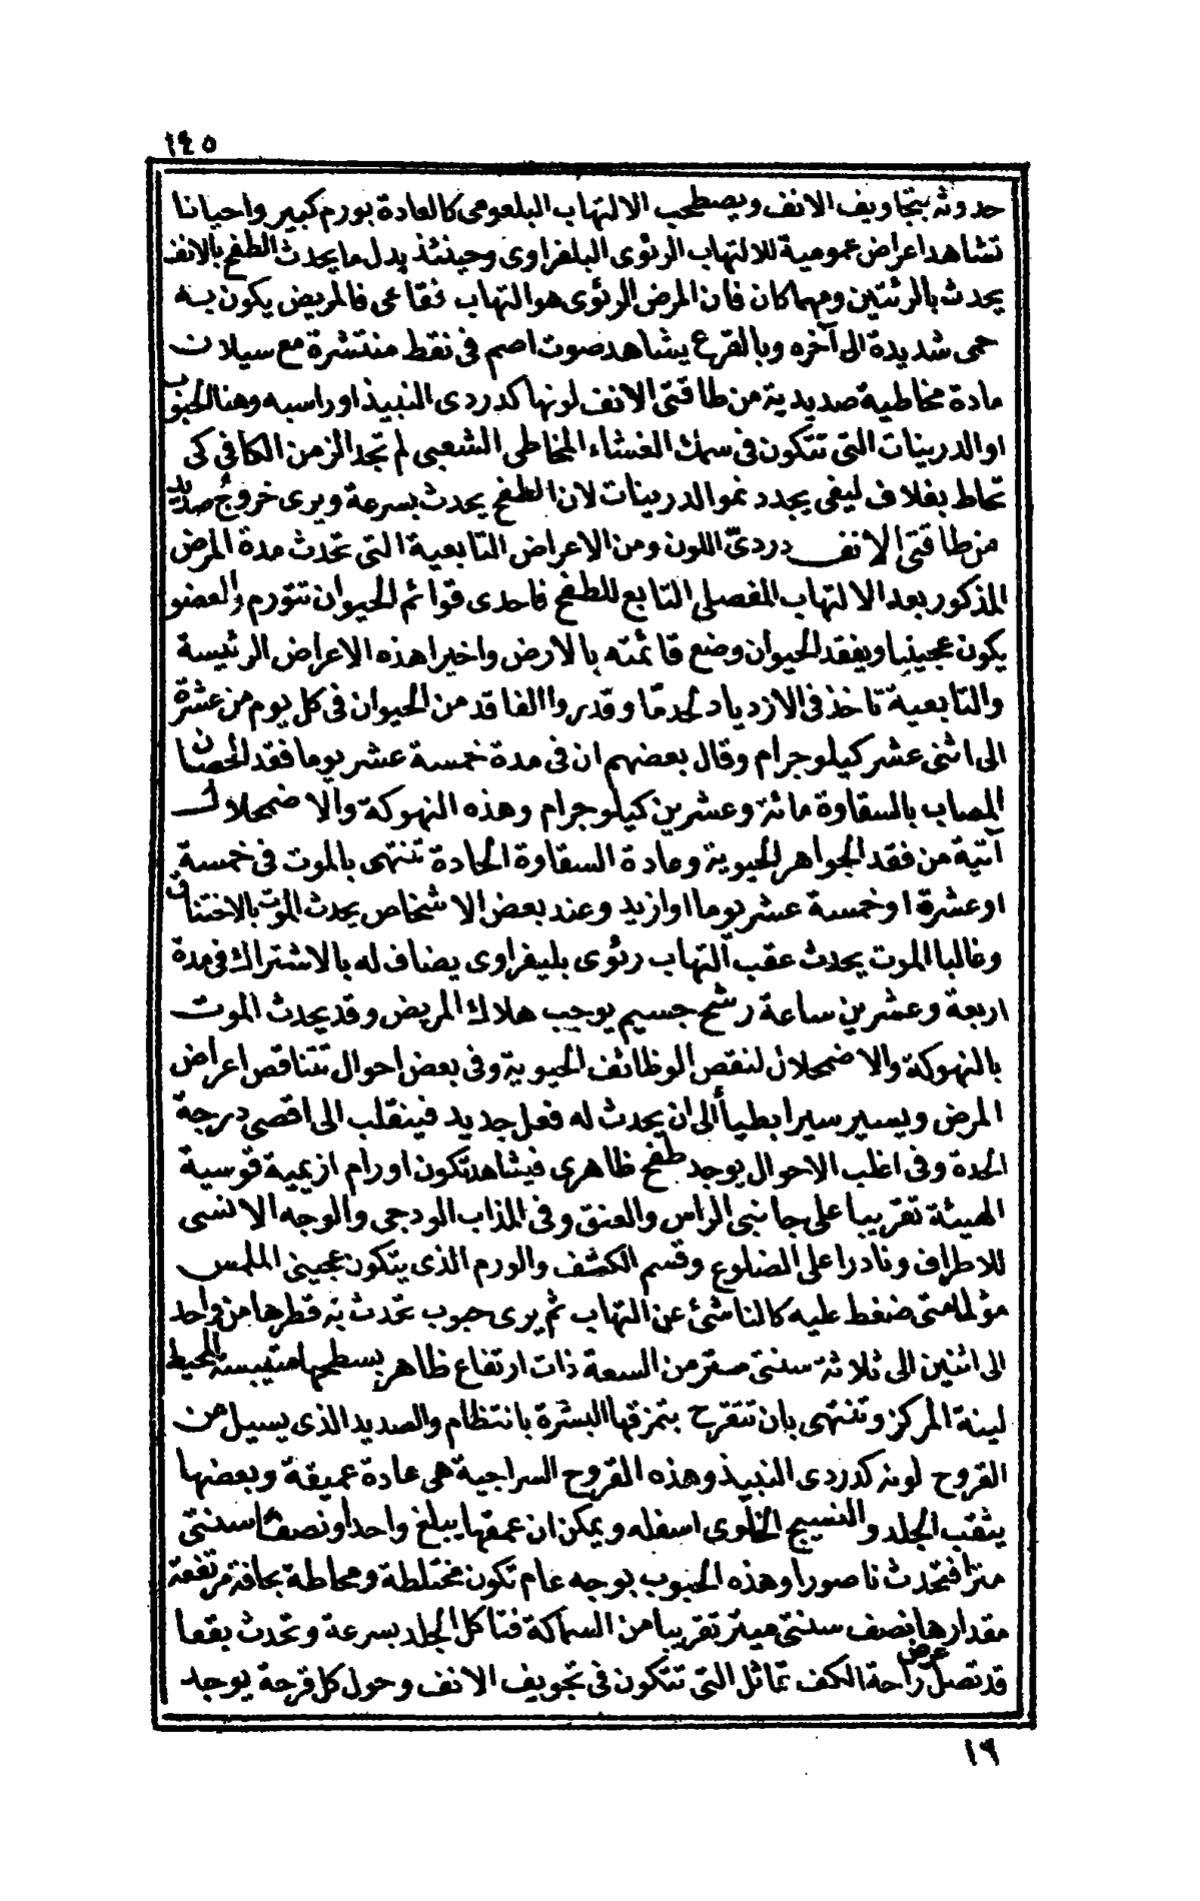 ١٤٥
حدوثه بتجاويف الانف ويصطحب الالتهاب البلعومى كالعادة بورم كبير واحيانا
تشاهد اعراض عمومية للالتهاب الرئوى البلغراوى وحينئذ بدل ما يحدث الطفح بالانف
يحدث بالرئتين ومهما كان فان المرض الرئوى هو التهاب فقاعى فالمريض يكون به
حمى شديدة الى آخره وبالقرع يشاهد صوت اصم فى نقط منتشرة مع سيلان
مادة مخاطية صديدية من طاقتى الانف لونها كدردى النبيذ اوراسبه وهنا الحبوب
او الدرينات التى تتكون فى سمك الغشاء المخاطى الشعبى لم تجد الزمن الكافى كى
تحاط بغلاف ليفى يجدد نمو الدرينات لان الطفح يحدث بسرعة ويرى خروج صديد
من طاقتى الانف دردىّ اللون ومن الاعراض التابعية التى تحدث مدة المرض
المذكور بعد الالتهاب المفصلى التابع للطفح فاحدى قوائم الحيوان تتورم والعضو
يكون عجينيا ويفقد الحيوان وضع قائمته بالارض واخيرا هذه الاعراض الرئيسة
والتابعية تاخذ فى الازدياد لحد مّا وقدروا الفاقد من الحيوان فى كل يوم من عشرة
الى اثنى عشر كيلوجرام وقال بعضهم ان فى مدة خمسة عشر يوما فقد الحصان
المصاب بالسقاوة مائة وعشرين كيلوجرام وهذه النهوكة والاضمحلال
آتية من فقد الجواهر الحيوية وعادة السقاوة الحادة تنتهى بالموت فى خمسة
او عشرة او خمسة عشر يوما او ازيد وعند بعض الاشخاص يحدث الموت بالاختناق
وغالبا الموت يحدث عقب التهاب رئوى بليفراوى يضاف له بالاشتراك فى مدة
اربعة وعشرين ساعة رشح جسيم يوجب هلاك المريض وقد يحدث الموت
بالنهوكة والاضمحلال لنقص الوظائف الحيوية وفى بعض احوال تتناقص اعراض
المرض ويسير سيرا بطيأ الى ان يحدث له فعل جديد فينقلب الى اقصى درجة
الحدة وفى اغلب الاحوال يوجد طفح ظاهرى فيشاهد تكون اورام ازيمية قوسية
الهيئة تقريبا على جانبى الراس والعنق وفى المذاب الودجى والوجه الانسى
للاطراف ونادرا على الضلوع وقسم الكشف والورم الذى يتكون عجينى الملمس
مؤلما متى ضغط عليه كالناشئ عن التهاب ثم يرى حبوب تحدث به قطرها من واحد
الى اثنين الى ثلاثة سنتى مستر من السعة ذات ارتفاع ظاهر بسطحها متيبسة المحيط
لينة المركز وتنتهى بان تتقرح بتمزقها البشرة بانتظام والصديد الذى يسيل من
القروح لونه كدردى النبيذ وهذه القروح السراجية هى عادة عميقة وبعضها
يثقب الجلد والنسيج الخلوى اسفله ويمكن ان عمقها يبلغ واحدا ونصفا سنتى
مترا فتحدث ناصورا وهذه الحبوب بوجه عام تكون مختلطة ومحاطة بحافة مرتفعة
مقدارها نصف سنتى ميتر تقريبا من السماكة فتاكل الجلد بسرعة وتحدث بقعا
قد تصل عرض راحة الكف تماثل التى تتكون فى تجويف الانف وحول كل قرحة يوجد
١٩